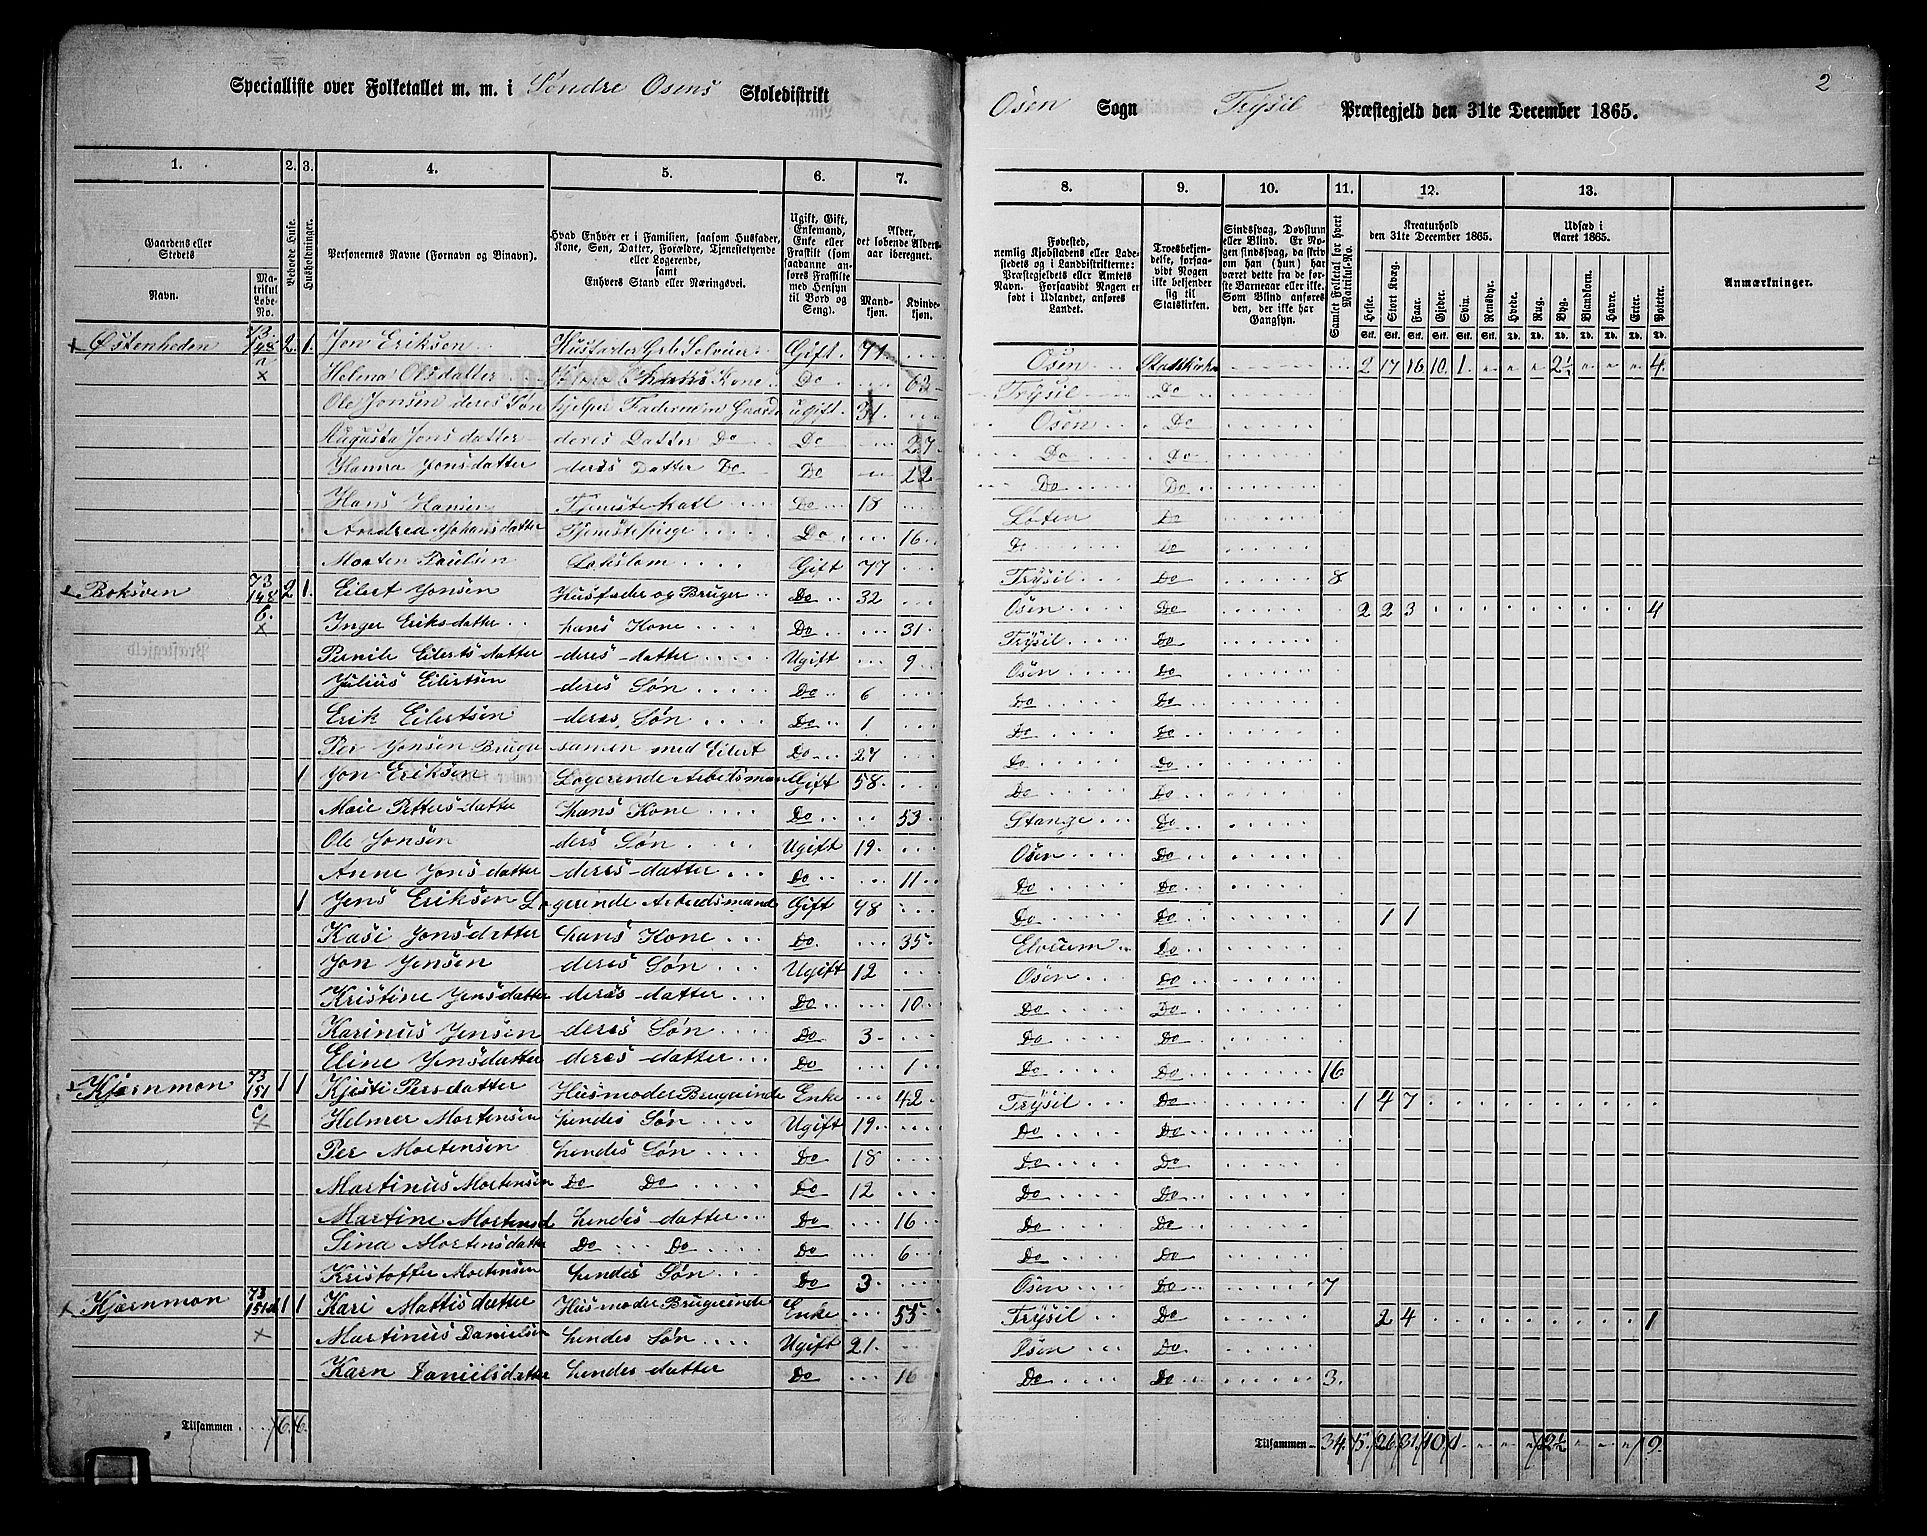 2
Specialliste over Folketallet m. m. i Søndre Osens Skoledistrikt
Osen Sogn Trysil Præstegjeld den 31te December 1865.
1. 2. 3. 4. 5. 6. 7. 8. 9. 10. 11. 12. 13.
Gaardens eller Stedets
Navn.
Matrikul Løbe-No.
Beboede Huse.
Husholdninger.
Personernes Navne (Fornavn og Binavn).
Hvad Enhver er i Familien, saasom Husfader, Kone, Søn, Datter, Forældre, Tjenestetyende eller Logerende, samt Enhvers Stand eller Næringsvei.
Ugift, Gift, Enkemand, Enke eller Fraskilt (som saadanne anføres Fraskilte med Hensyn til Bord og Seng).
Alder, det løbende Alders-aar iberegnet.
Mand-kjøn.
Kvinde-kjøn.
Fødested, nemlig Kjøbstadens eller Ladestedets og i Landdistrikterne: Præstegjeldets eller Amtets Navn. Forsaavidt Nogen er født i Udlandet, anføres Landet.
Troesbekjendelse, forsaavidt Nogen ikke bekjender sig til Statskirken.
Sindssvag, Døvstum eller Blind. Er Nogen sindssvag, da skriv om han (hun) har været dette fra de første Barneaar eller ikke. Som Blind anføres den, der ikke har Gangsyn.
Samlet Folketal for hvert Matrikul-No.
Kreaturhold den 31te December 1865.
Heste. Stort Kvæg. Faar. Gjeder. Svin. Rensdyr.
Udsæd i Aaret 1865.
Hvede. Rug. Byg. Blandkorn. Havre. Erter. Poteter.
Stk. Stk. Stk. Stk. Stk. Stk. Td. Td. Td. Td. Td. Td. Td.
Anmærkninger.
Østenheden 73 148 a 2 1 Jon Eriksen Husfader Grb Selveier Gift 71 Osen Statskirke 2 17 16 10 1 2½ 4
Helena Olsdatter hans Kone Do 62 Trysil Do
Ole Jonsen deres Søn hjelper Faderen m Gaarden ugift 31 Osen Do
Augusta Jonsdatter deres Datter Do Do 27 Do Do
Hanna Jonsdatter deres Datter Do Do 22 Do Do
Hans Hansen Tjenestekarl Do 18 Løten Do
Andrea Johansdatter Tjenestepige Do 16 Do Do
Morten Paulsen Lægslem Gift 77 Trysil Do 8
Boksven 73 148 b 2 1 Eilert Jonsen Husfader og Bruger Do 32 Osen Do 2 2 3 4
Inger Eriksdatter hans Kone Do 31 Trysil Do
Pernile Eilertsdatter deres datter Ugift 9 Osen Do
Julius Eilertsen deres Søn Do 6 Do Do
Erik Eilertsen deres Søn Do 1 Do Do
Per Jonsen Bruger samen med Eilert Do 27 Do Do
1 Jon Eriksen Logerende Arbedsmand Gift 58 Do Do
Marie Pettersdatter hans Kone Do 53 Stange Do
Ole Jonsen ders Søn Ugift 19 Osen Do
Anne Jonsdatter deres datter Do 11 Do Do
1 Jens Eriksen Logerende Arbedsmand Gift 48 Do Do 1 1
Kasi Jonsdatter hans Kone Do 35 Elverum Do
Jon Jensen deres Søn Ugift 12 Osen Do
Kristine Jensdatter deres datter Do 10 Do Do
Karinus Jensen deres Søn Do 3 Do Do
Eline Jensdatter deres datter Do 1 Do Do 16
Kjernmon 73 151 c 1 1 Kjersti Persdatter Husmoder Brugerinde Enke 42 Trysil Do 1 4 7
Helmer Mortensen hendes Søn Ugift 19 Do Do
Per Mortensen hendes Søn Do 18 Do Do
Martinus Mortensen Do Do Do 12 Do Do
Martine Mortensd hendes datter Do 16 Do Do
Sina Mortensdatter Do Do Do 6 Do Do
Kristoffer Mortensen hendes Søn Do 3 Osen Do 7
Kjernmon 73 151 d 1 1 Kari Mattisdatter Husmoder Brugerinde Enke 55 Trysil Do 2 4 1
Martinus Danielsen hendes Søn Ugift 21 Osen Do
Karn Danielsdatter hendes datter Do 16 Do Do 3
Tilsammen 6 6
Tilsammen 34 5 26 31 10 1 2½ 9